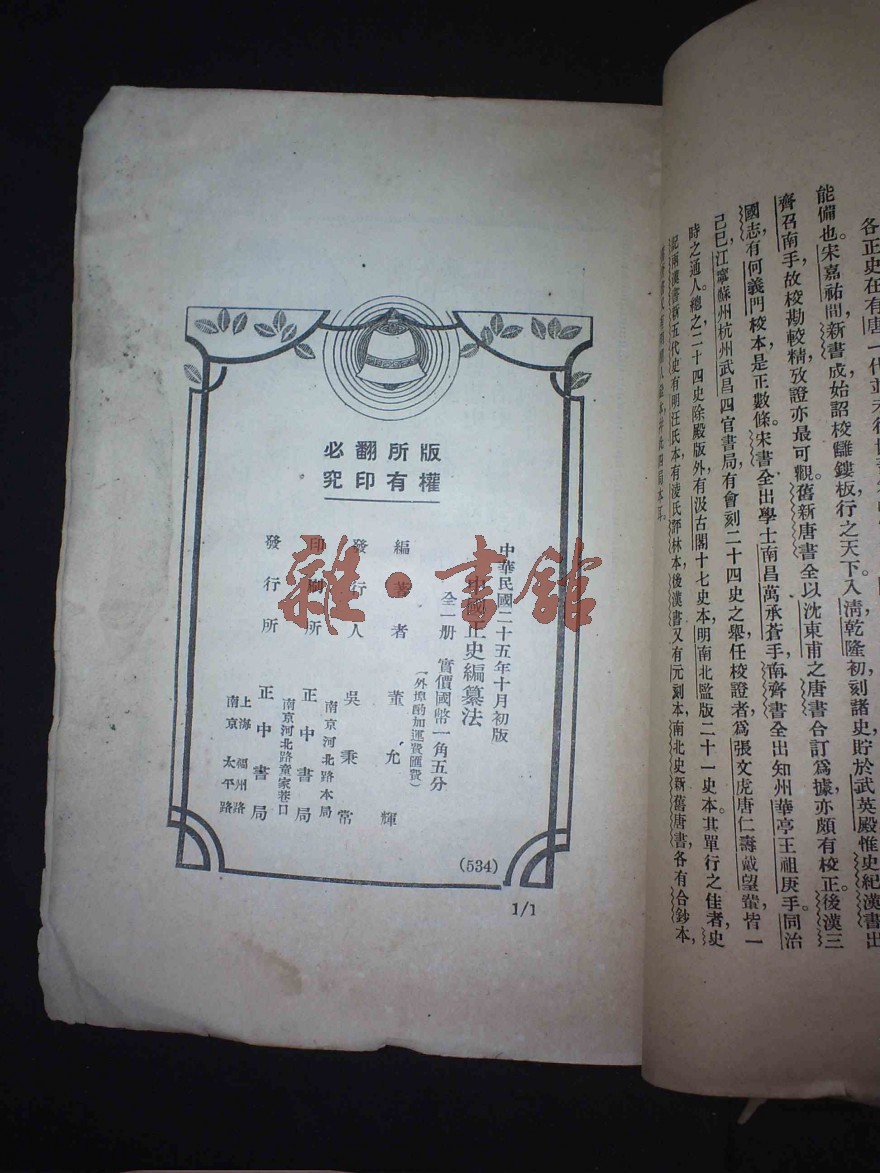 能備也。宋嘉祐間,新書成始詔校讎鏤板,行之天下。入清乾隆初,刻諸史貯於武英殿,惟史紀漢書出
齊召南手,故校勘較精,攷證亦最可觀。舊新唐書全以沈東甫之唐書合訂爲據,亦頗有校正。後漢三
國志有何義門校本,是正數條。宋書全出學士南昌萬承蒼手,南齊書全出知州華亭王祖庚手。同治
己巳,江寧蘇州杭州武昌四官書局,有會刻二十四史之舉,任校證者爲張文虎唐仁壽戴望輩,皆一
時之通人。總之二十四史除殿版外,有汲古閣十七史本,明南北監版二十一史本。其單行之佳者,史
記兩漢書新五代史有明汪氏本,有凌氏評林本,後漢書又有元刻本,南北史新舊唐書,各有合鈔本,
版權
所有
翻印
必究
中華民國二十五年十月初版
中國正史編纂法
全一册 實價國幣一角五分
(外埠酌加運費匯費)
編著者 董允輝
發行人 吳秉常
印刷所 南京河北路本局 正中書局
發行所 南京河北路童家巷口 正中書局
上海 福州路
南京 太平路
(534)
1/1
雜·書館